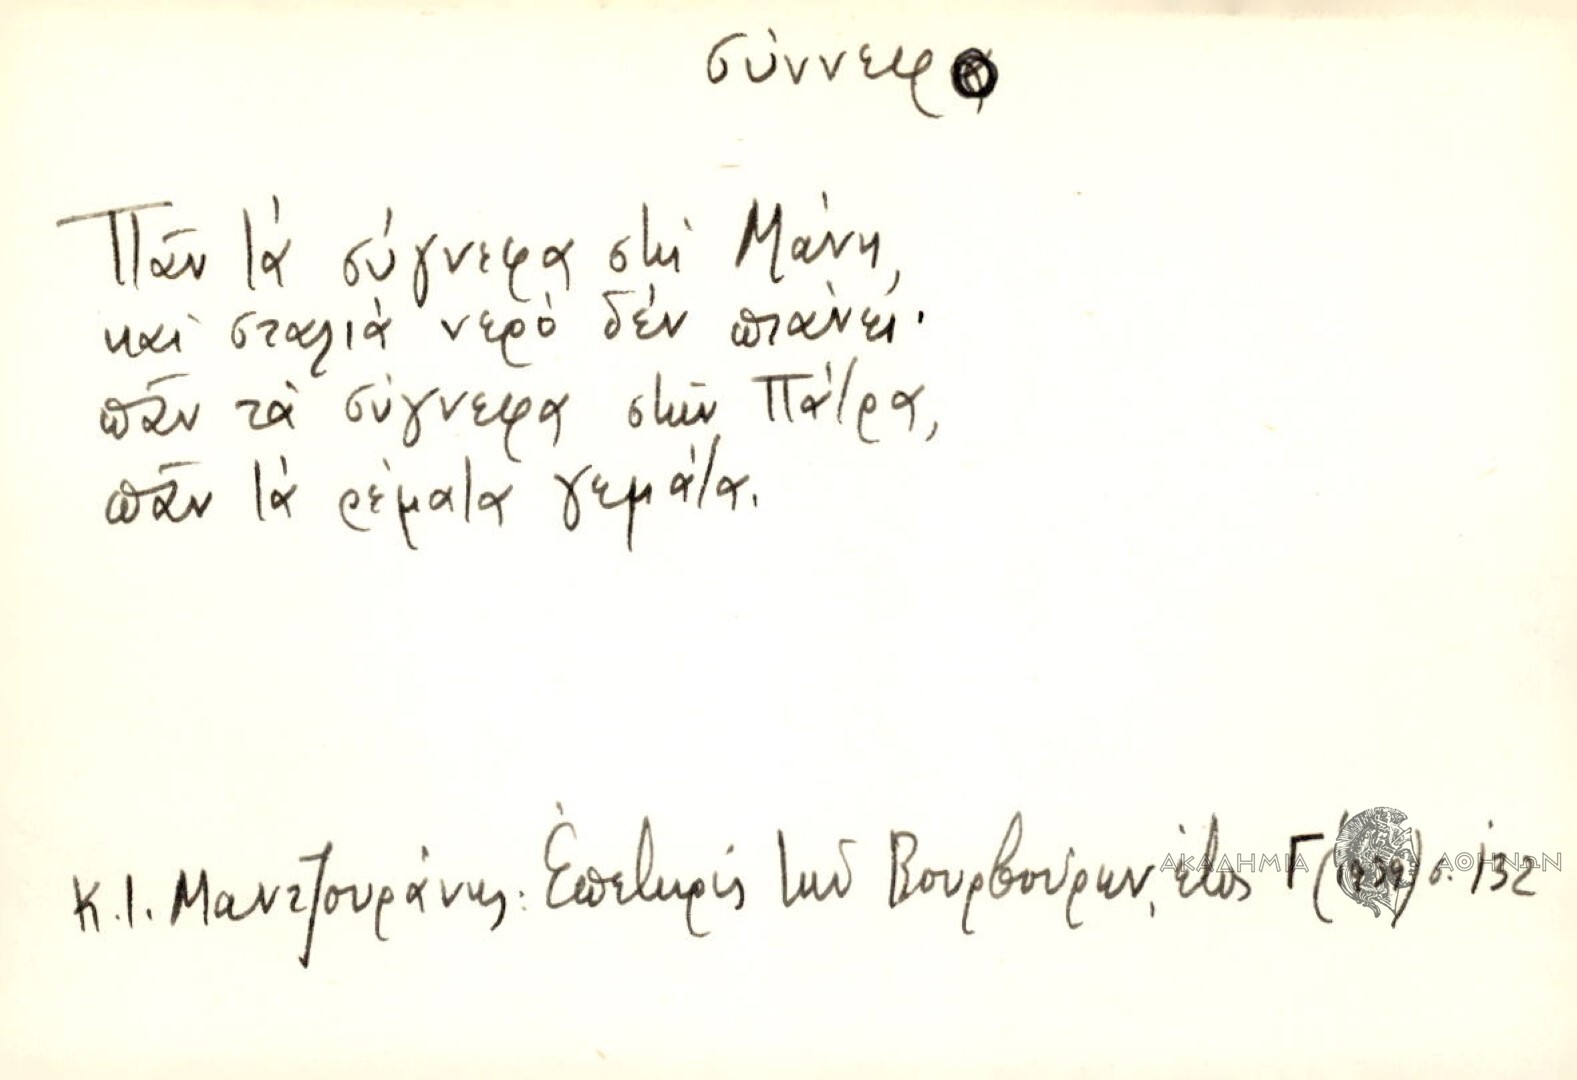 σύννεφο
Πᾶν τά σύγνεφα στή Μάνη,
καί σταλιά νερό δέν πιάνει·
πᾶν τά σύγνεφα στήν Πάτρα,
πᾶν τά ρέματα γεμάτα.
Κ.Ι. Μαντζουράνης: Ἐπετηρίς τῶν Βουρβούρων, ἔτος Γ (1939) σ. 132
ΑΚΑΔΗΜΙΑ ΑΘΗΝΩΝ